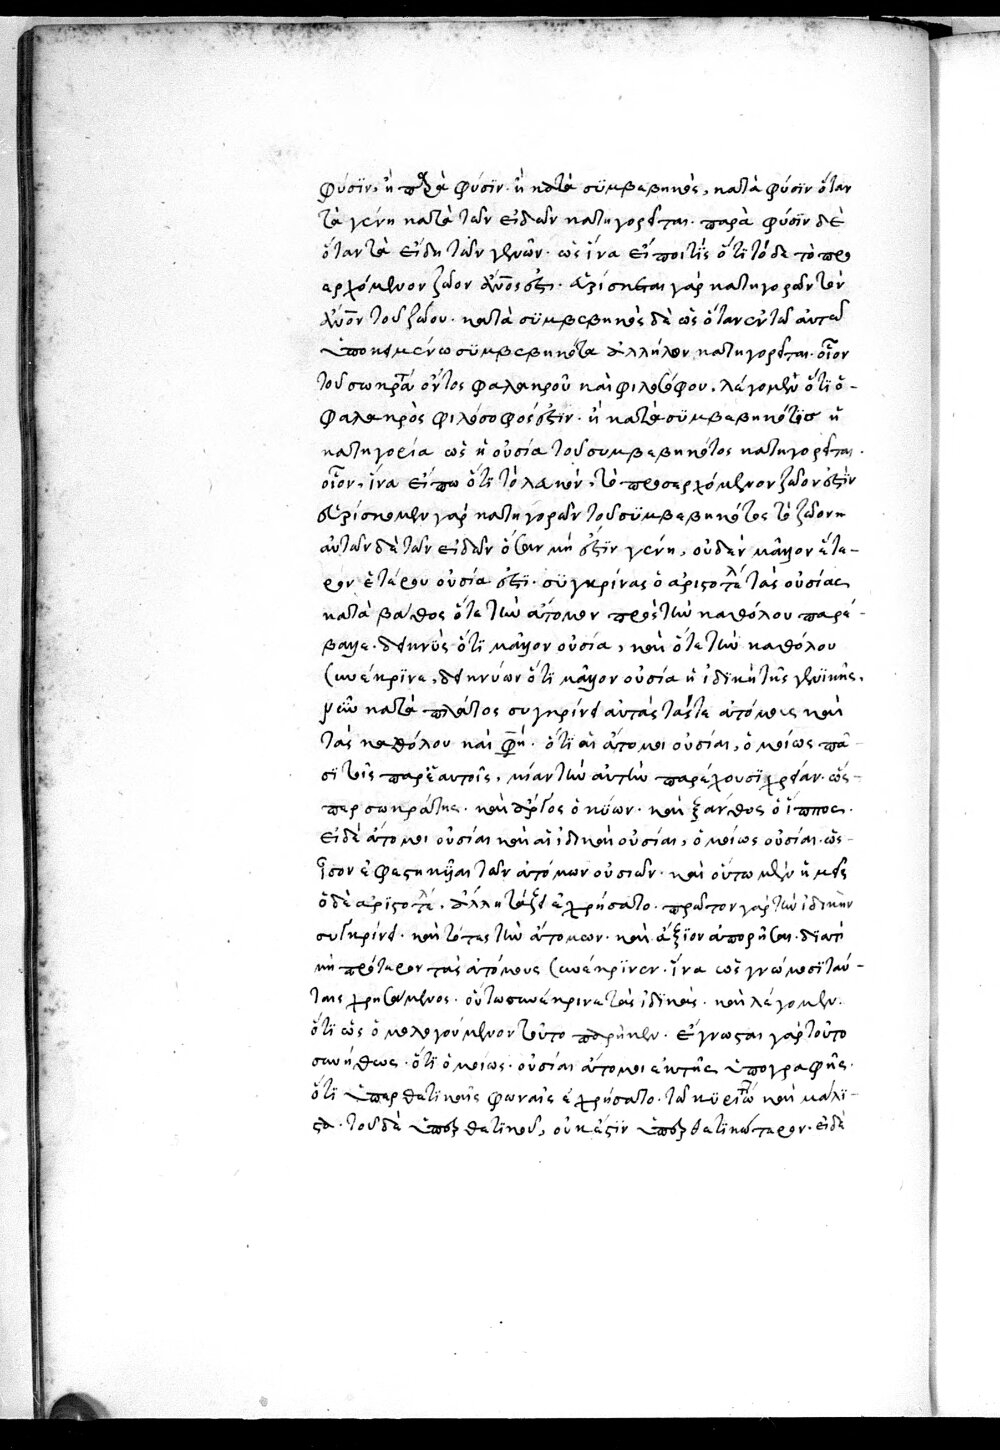 φύσϊν, ἢ παρὰ φύσϊν· ἢ κατὰ σϋμβεβηκὸς, κατὰ φύσϊν ὅταν
τὰ γένη κατὰ τῶν εἰδῶν κατηγορεῖται· παρὰ φύσϊν δὲ
ὅταν τὰ εἴδη τῶν γενῶν· ὡς ἵνα εἴποι τῒς ὅτϊ τόδε τὸ προ
ερχόμενον ζῶον ἄνος ἐστϊ· εὑρίσκεται γὰρ κατηγορῶν τὸν
ἄνον τοῦ ζώου· κατὰ σϋμβεβηκὸς δὲ ὡς ὅταν ἐν τῶ αὐτῶ
ὑποκειμένω σϋμβεβηκότα ἀλλήλων κατηγορεῖται· οἷον
τοῦ σωκρά ὄντος φαλακροῦ καὶ φιλοσόφου, λέγομεν ὅτϊ ὁ
φαλακρὸς φιλόσοφός ἐστϊν· ἢ κατὰ σϋμβεβηκότος ἡ
κατηγορία ὡς ἡ οὐσία τοῦ συμβεβηκότος κατηγορεῖται·
οἷον, ἵνα εἴπω ὅτϊ τὸ λευκὸν, τὸ προσερχόμενον ζῶον ἐστὶν
εὑρίσκομεν γὰρ κατηγορῶν τοῦ σϋμβεβηκότος τὸ ζῶον η
αὐτῶν δὲ τῶν εἰδῶν ὅσα μή ἐστϊν γένη, οὐδὲν μᾶλλον ἕτε-
ρον ἑτέρου οὐσία ἐστϊ· συγκρίνας ὁ αριστοτέλ τὰς οὐσίας
κατὰ βάθος ὅτε τὴν ἄτομον πρὸς τὴν καθόλου παρέ-
βαλλε· δεικνὺς ὅτϊ μᾶλλον οὐσία, καὶ ὅτε τὴν καθόλου
συνέκρϊνε, δεικνύων ὅτϊ μᾶλλον οὐσία ἡ ἰδικὴ τῆς γενϊκῆς,
νῦν κατὰ πλάτος συγκρίνει αὐτὰς τάς τε ἀτόμους καὶ
τὰς καθόλου καὶ φη· ὅτϊ αἱ ἄτομοι οὐσίαι, ὁμοίως πᾶ-
σϊ τοῖς παρ' ἑαυτοῖς, μίαν τὴν αὐτὴν παρέχουσϊ χρείαν· ὥσ-
περ σωκράτης· καὶ ἄργος ὁ κύων· καὶ ξάνθος ὁ ἵππος·
εἰ δὲ ἄτομοι οὐσίαι καὶ αἱ ἰδικαὶ οὐσίαι, ὁμοίως οὐσίαι· ὡς-
ἴσον ἐφεστηκυῖαι τῶν ἀτόμων οὐσιῶν· καὶ οὕτω μὲν ἡμεῖς
ὁ δὲ αριστοτέλ, ἄλλη τάξει ἐχρήσατο· πρῶτον γὰρ τὴν ἰδικὴν
συγκρίνει· καὶ τότε τὴν ἄτομον· καὶ ἄξϊον ἀπορῆσαι· δϊατί
μὴ πρότερον τὰς ἀτόμους συνέκρϊνεν· ἵνα ὡς γνώμοσϊ ταύ-
ταις χρησάμενος· οὕτω συνέκρινε τὰς ἰδϊκάς· καὶ λέγομεν·
ὅτϊ ὡς ὁμολογούμενον τοῦτο παρῆκεν· ἔγνωσται γὰρ τοῦτο
συνήθως· ὅτϊ ὁμοίως· οὐσίαι ἄτομοι ἐκ τῆς ὑπογραφῆς·
ὅτϊ ὑπερθετϊκαῖς φωναῖς ἐχρήσατο· τῶ κϋριωτ καὶ μάλϊ-
στα· τοῦ δὲ ὑπερθετϊκοῦ, οὐκ ἔστϊν ὑπερθετϊκώτερον· εἰ δὲ